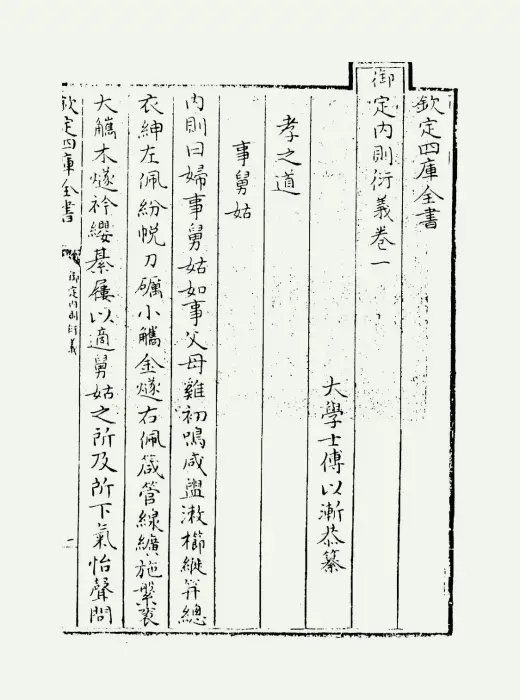 欽定四庫全書
御定內則衍義卷一
大學士傅以漸恭纂
孝之道
事舅姑
內則曰婦事舅姑如事父母雞初鳴咸盥漱櫛縰笄總
衣紳左佩紛帨刀礪小觿金燧右佩箴管線纊施縏袠
大觿木燧衿纓綦屨以適舅姑之所及所下氣怡聲問
欽定四庫全書
御定內則衍義
一